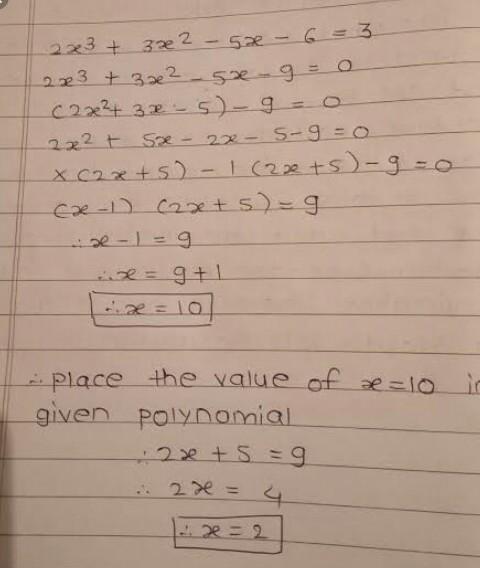 2x³ + 3x² - 5x - 6 = 3
2x³ + 3x² - 5x - 9 = 0
(2x² + 3x - 5) - 9 = 0
2x² + 5x - 2x - 5 - 9 = 0
x(2x + 5) - 1(2x + 5) - 9 = 0
(x - 1) (2x + 5) = 9
∴ x - 1 = 9
∴ x = 9 + 1
∴ x = 10
∴ place the value of x = 10 in
given polynomial
∴ 2x + 5 = 9
∴ 2x = 4
∴ x = 2